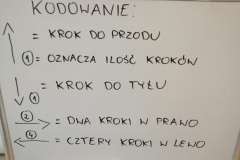 KODOWANIE:
= KROK DO PRZODU
① = OZNACZA ILOŚĆ KROKÓW
= KROK DO TYŁU
①
② = DWA KROKI W PRAWO
④ = CZTERY KROKI W LEWO